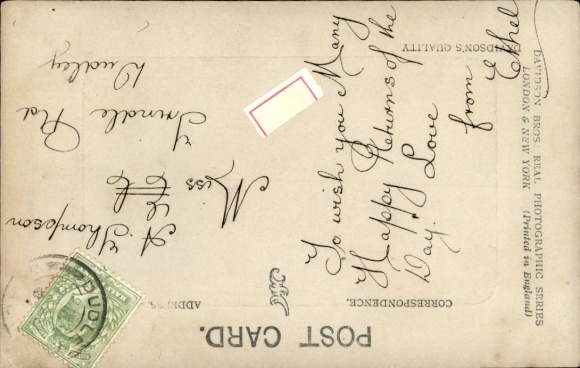 POST CARD.
CORRESPONDENCE.
To wish you Many
Happy Returns of the
Day. Love
from
Ethel
Miss
A. Thompson
Dudley
DAVIDSON BROS. REAL PHOTOGRAPHIC SERIES
LONDON & NEW YORK (Printed in England)
DAVIDSON'S QUALITY
DUDLEY